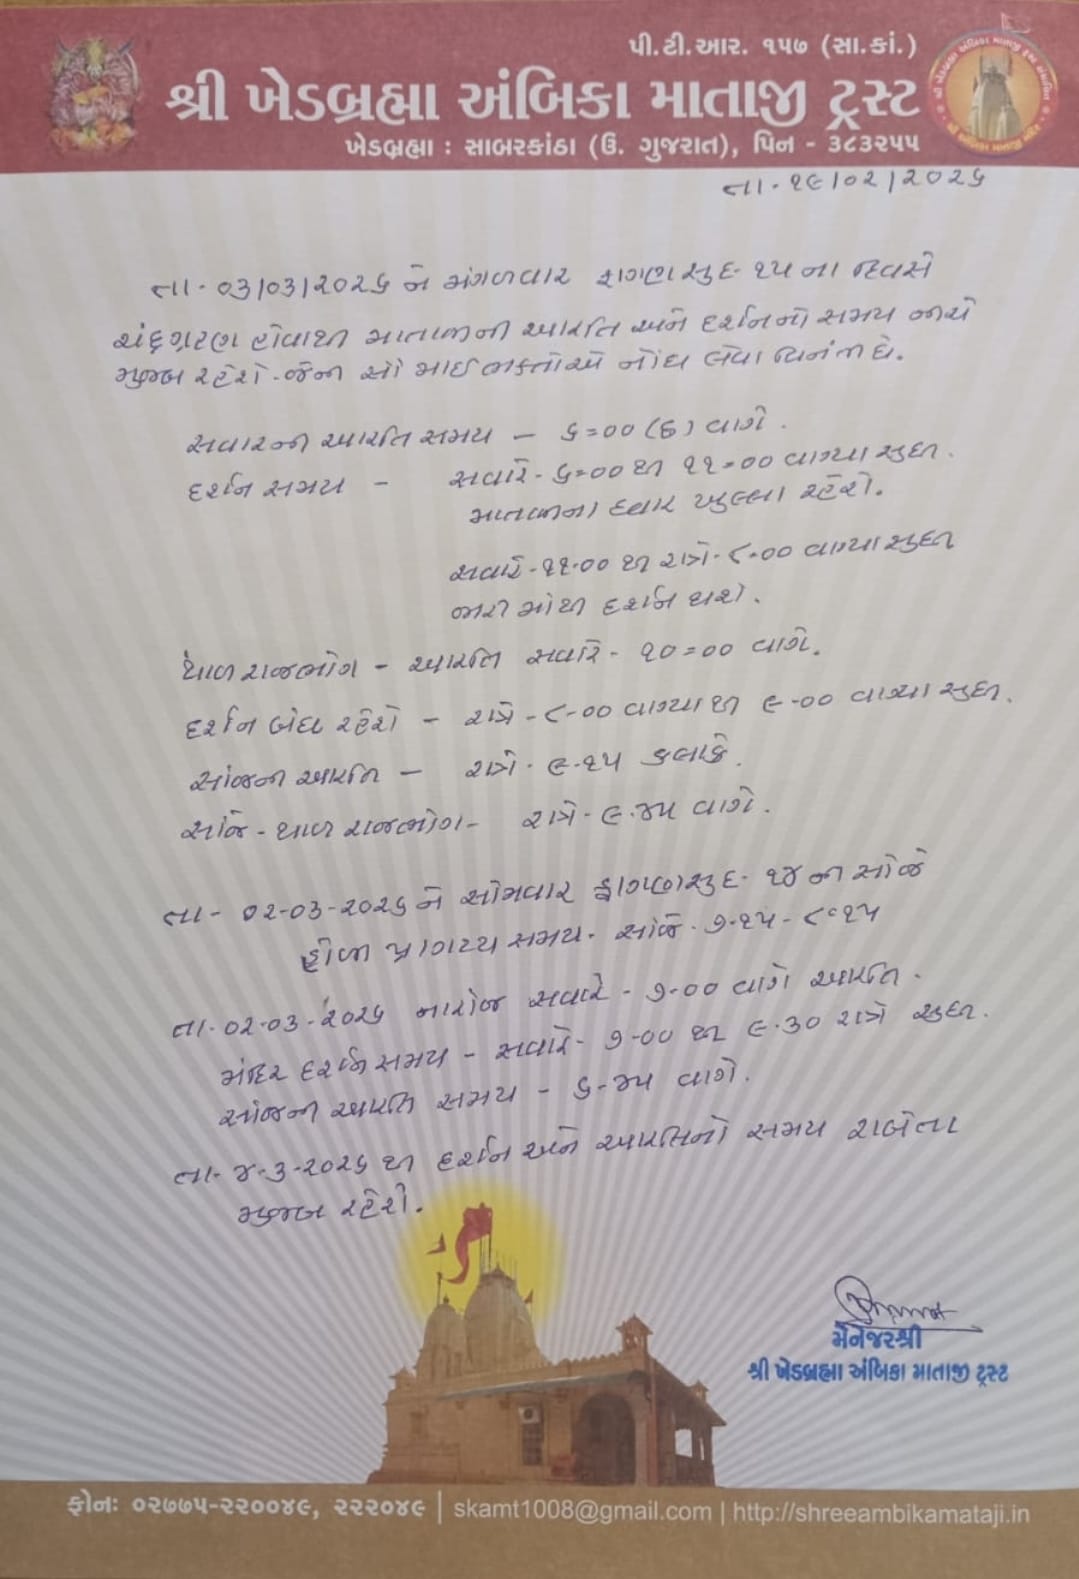 પી.ટી.આર. ૧૫૭ (સા.કાં.)
શ્રી ખેડબ્રહ્મા અંબિકા માતાજી ટ્રસ્ટ
ખેડબ્રહ્મા : સાબરકાંઠા (ઉ. ગુજરાત), પિન - ૩૮૩૨૫૫
તા.૧૯/૦૨/૨૦૨૬
તા.૦૩/૦૩/૨૦૨૬ ને મંગળવાર ફાગણ સુદ-૧૫ ના દિવસે
ચંદ્રગ્રહણ હોવાથી માતાજીની આરતિ અને દર્શનનો સમય નીચે
મુજબ રહેશે. જેની સૌ માઈ ભક્તોએ નોંધ લેવા વિનંતી છે.
સવારની આરતિ સમય - ૬=૦૦ (છ) વાગે.
દર્શન સમય - સવારે-૬=૦૦ થી ૧૧=૦૦ વાગ્યા સુધી.
માતાજીના દ્વાર ખુલ્લા રહેશે.
સવારે-૧૧.૦૦ થી રાત્રે-૮.૦૦ વાગ્યા સુધી
જાળીમાંથી દર્શન થશે.
થાળ રાજભોગ - આરતિ સવારે - ૧૦=૦૦ વાગે.
દર્શન બંધ રહેશે - રાત્રે-૮-૦૦ વાગ્યા થી ૯-૦૦ વાગ્યા સુધી.
સાંજની આરતિ - રાત્રે. ૯.૧૫ કલાકે.
સાંજે - થાળ રાજભોગ - રાત્રે-૯.૪૫ વાગે.
તા- ૦૨-૦૩-૨૦૨૬ ને સોમવાર ફાગણ સુદ- ૧૪ ની સાંજે
હોળી પ્રાગટ્ય સમય. સાંજે. ૭.૧૫ - ૮.૧૫
તા. ૦૨-૦૩-૨૦૨૬ ના રોજ સવારે - ૭-૦૦ વાગે આરતિ.
મંદિર દર્શન સમય - સવારે- ૭-૦૦ થી ૯.૩૦ રાત્રે સુધી.
સાંજની આરતિ સમય - ૬-૪૫ વાગે.
તા- ૪-૩-૨૦૨૬ થી દર્શન અને આરતિનો સમય રાબેતા
મુજબ રહેશે.
મેનેજરશ્રી
શ્રી ખેડબ્રહ્મા અંબિકા માતાજી ટ્રસ્ટ
ફોનઃ ૦૨૭૭૫-૨૨૦૦૪૯, ૨૨૨૦૪૯ | skamt1008@gmail.com | http://shreeambikamataji.in